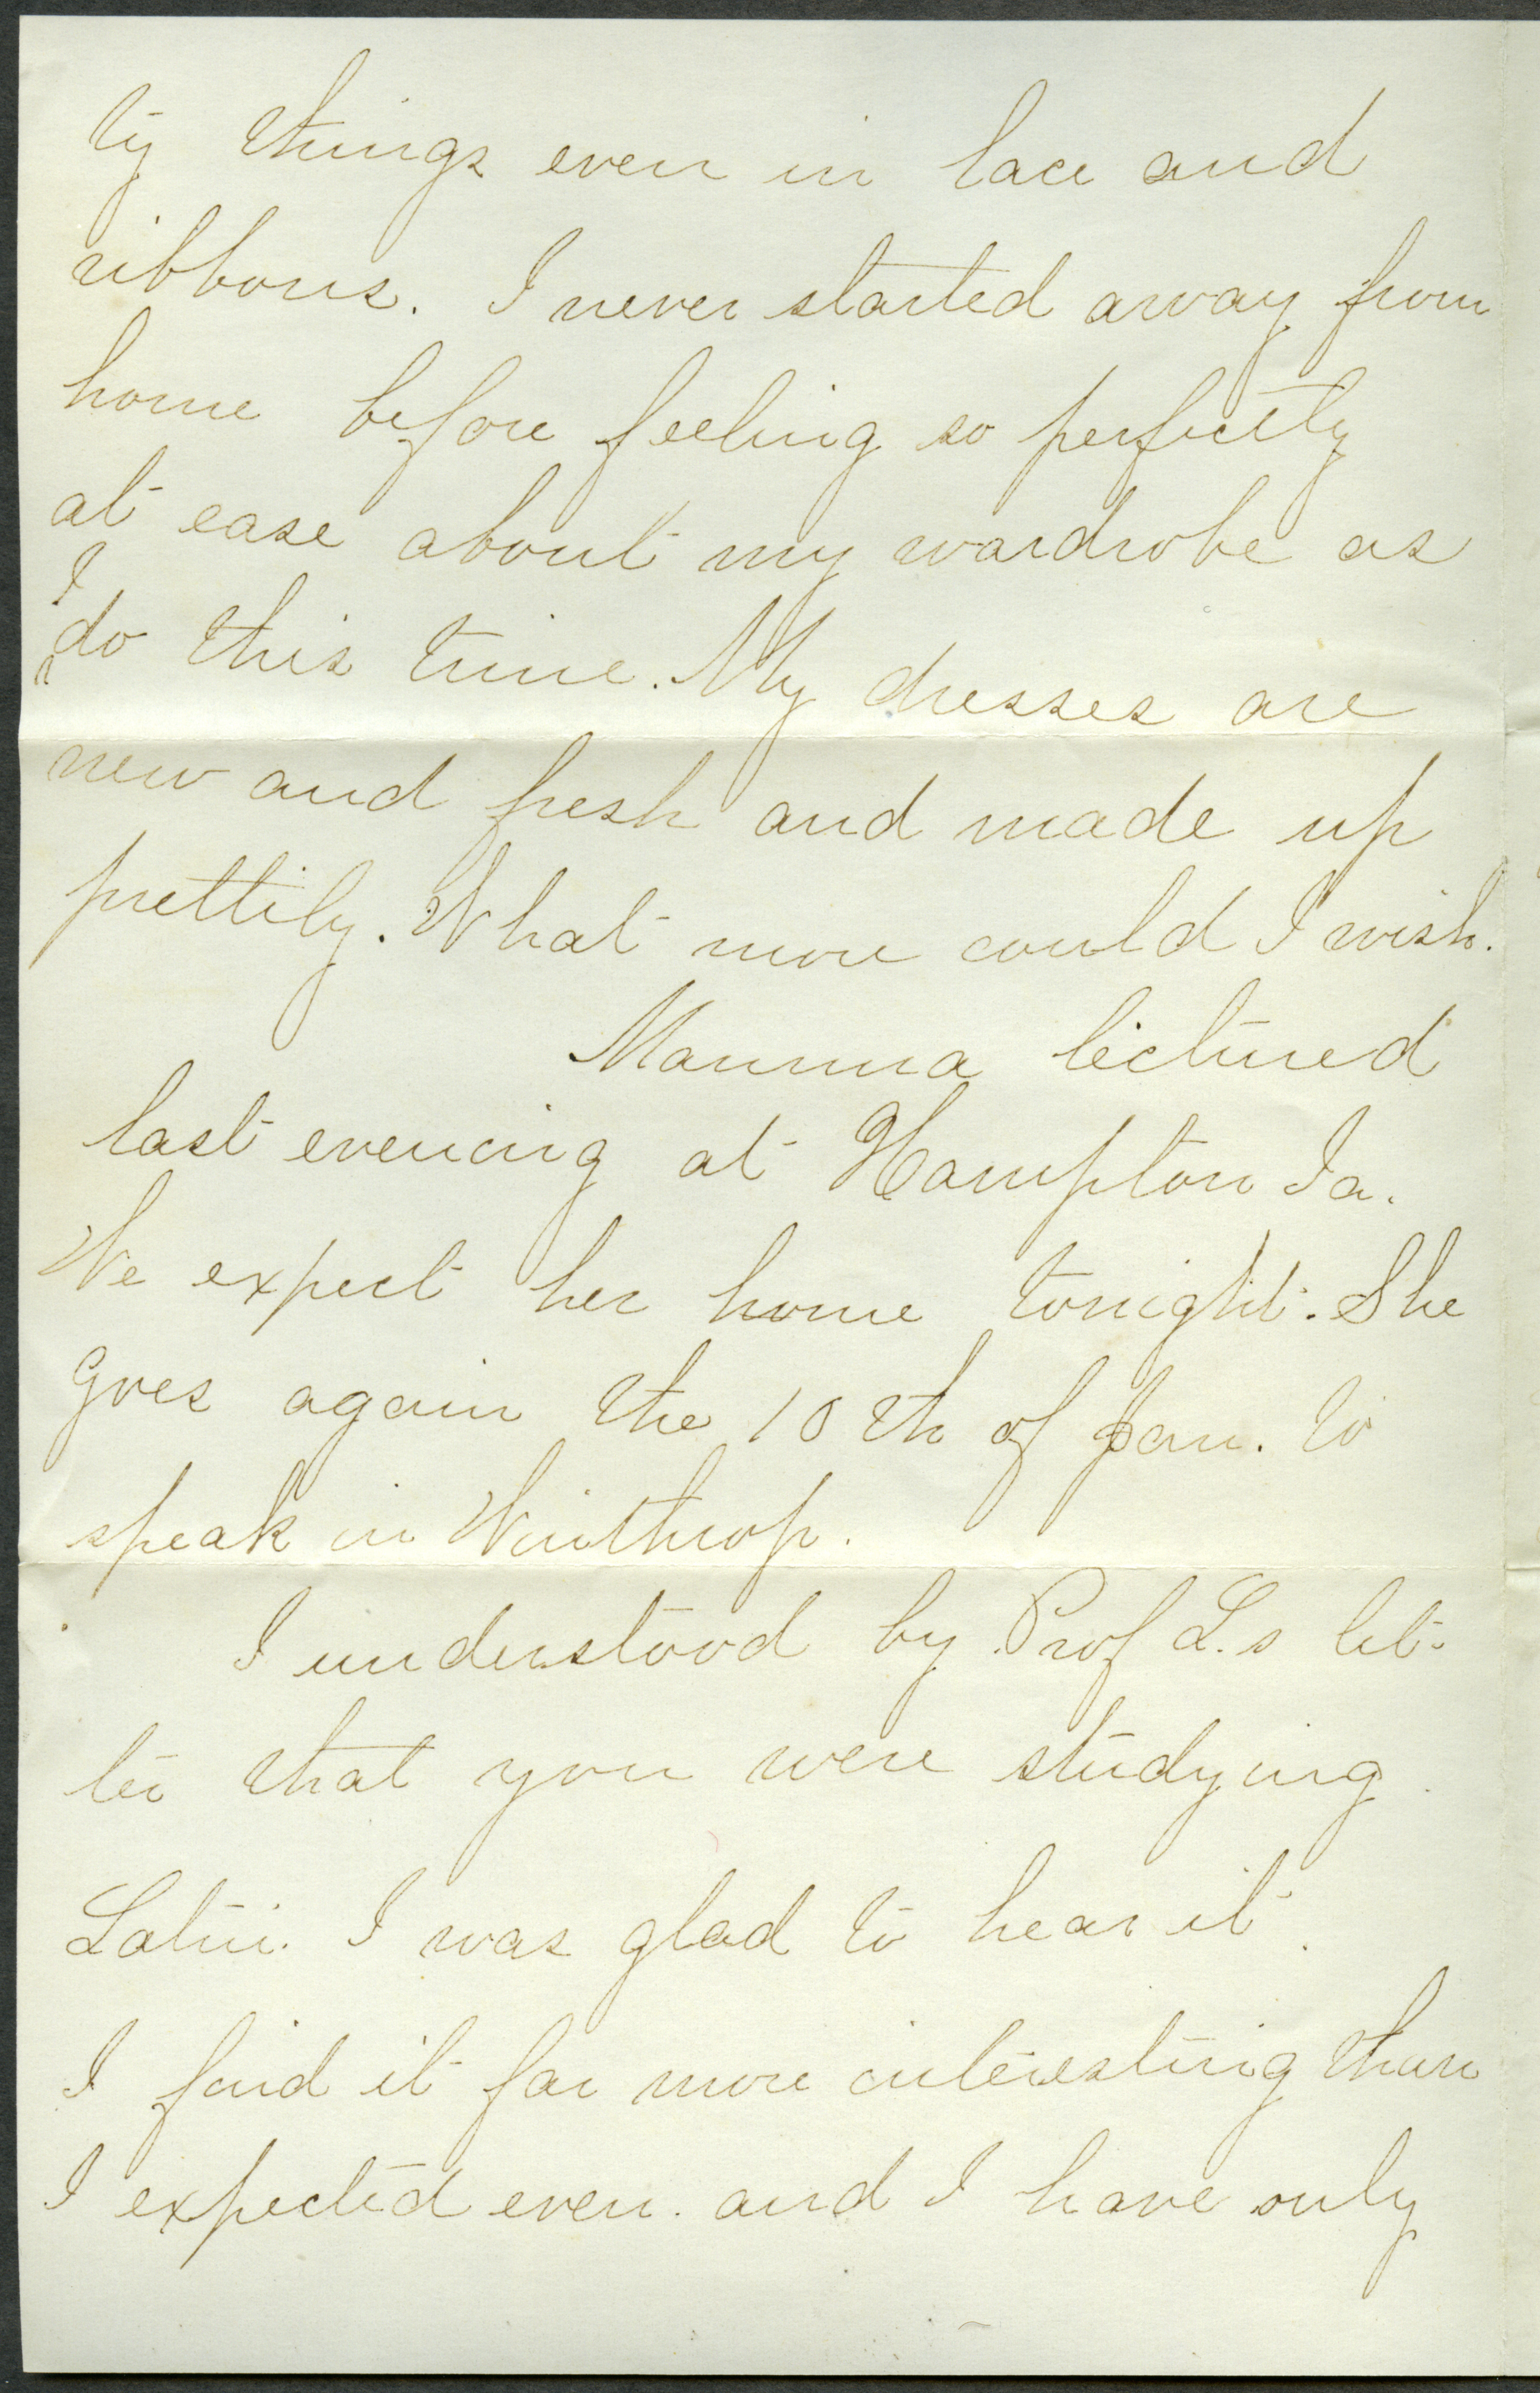 ty things even in lace and
ribbons. I never started away from
home before feeling so perfectly
at ease about my wardrobe as
I do this time. My dresses are
new and fresh and made up
prettily. What more could I wish.
Mamma lectured
last evening at Hampton Ia.
We expect her home tonight. She
goes again the 10th of Jan. to
speak in Winthrop.
I understood by Prof L.s let-
ter that you were studying
Latin. I was glad to hear it.
I find it far more interesting than
I expected even. and I have only